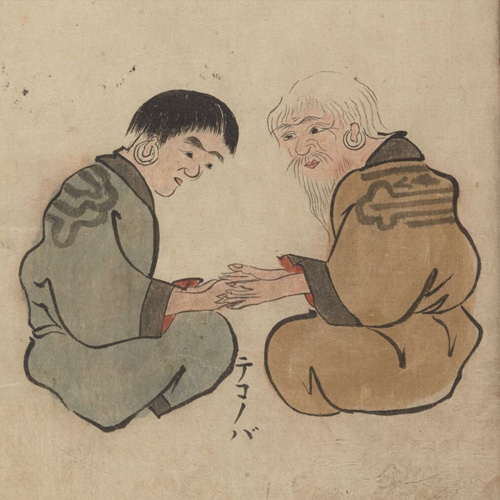 テコノバ